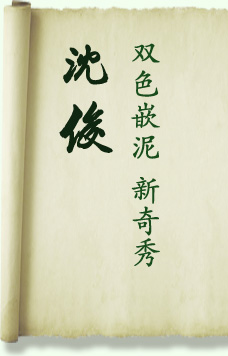 双色嵌泥 新奇秀
沈俊